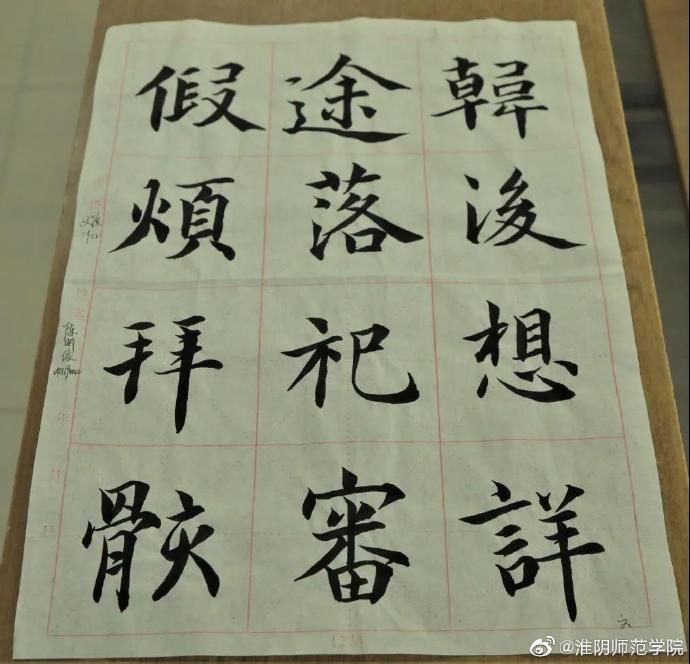 韓後想詳
途落祀審
假煩拜骸
@淮阴师范学院